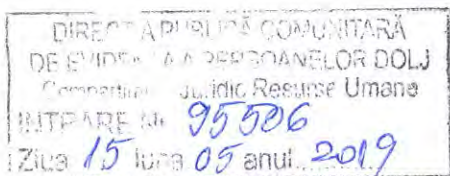 DIRECȚIA PUBLICĂ COMUNITARĂ
DE EVIDENȚĂ A PERSOANELOR DOLJ
Compartiment Juridic Resurse Umane
INTRARE Nr. 95506
Ziua 15 luna 05 anul 2019